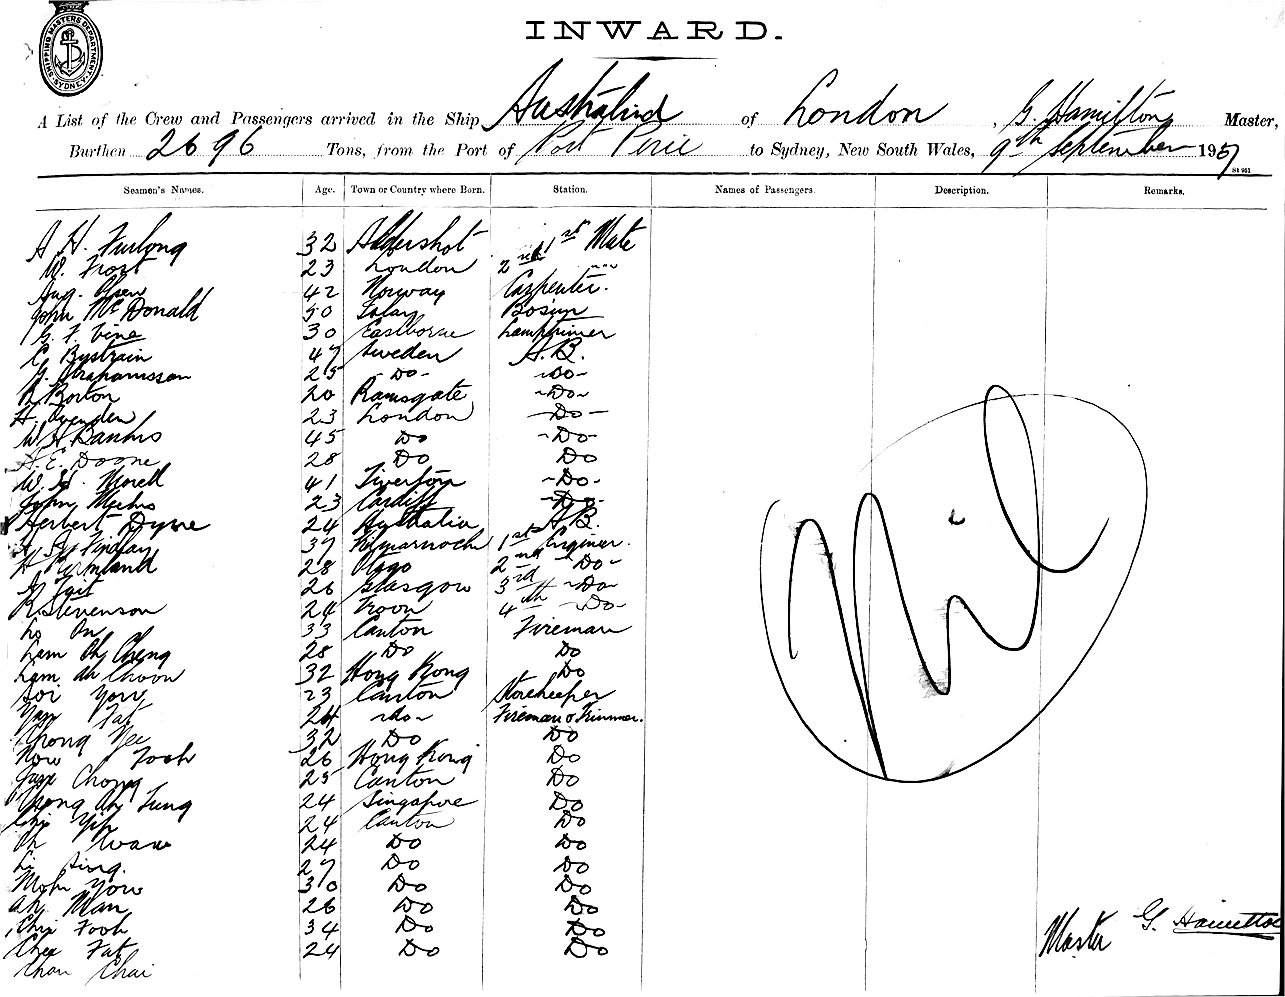 SHIPPING MASTERS DEPARTMENT. SYDNEY
INWARD.
A List of the Crew and Passengers arrived in the Ship Australind of London, G. Hamilton Master,
Burthen 2696 Tons, from the Port of Port Pirie to Sydney, New South Wales, 9th September 190
St 961
Seamen's Names. Age. Town or Country where Born. Station. Names of Passengers. Description. Remarks.
A H. Furlong 32 Aldershot 1st Mate
W. Frost 23 London 2nd "
Aug. Olsen 42 Norway Carpenter.
John McDonald 50 Bosun
G. F. Vine 30 Eastborne Lamptrimer
C. Bystrain 47 Sweden A.B.
Abrahamsson 25 -Do- -Do-
R Borton 20 Ramsgate -Do-
H. Ovenden 23 London -Do-
W H Banks 45 Do -Do-
A. E. Doone 28 Do Do
W. H. Morell 41 Tiverton -Do-
John 23 Cardiff -Do-
Herbert Dyne 24 Australia A.B.
Findlay 37 Kilmarnock 1st Engineer.
H 28 Otago 2nd -Do-
Tait 26 Glasgow 3rd -Do-
R Stevenson 24 Troon 4th -Do-
Lo On 33 Canton Fireman
Lam Ah Cheng 28 Do Do
Lam Ah Choon 32 Hong Kong Do
Soi You 23 Canton Storekeeper
Yan Fat 24 -Do- Fireman & Trimmer.
Chong Yee 32 Do Do
How Fook 26 Hong Kong Do
Chong 25 Canton Do
Chong Ah Tung 24 Singapore Do
Yip 24 Canton Do
Ah Wan 24 Do Do
Li Sing. 27 Do Do
Mok You 30 Do Do
Ah Man 26 Do Do
Chin Fook 34 Do Do
Chee Fat 24 Do Do
Chan Chai
Nil
Master G. Hamilton